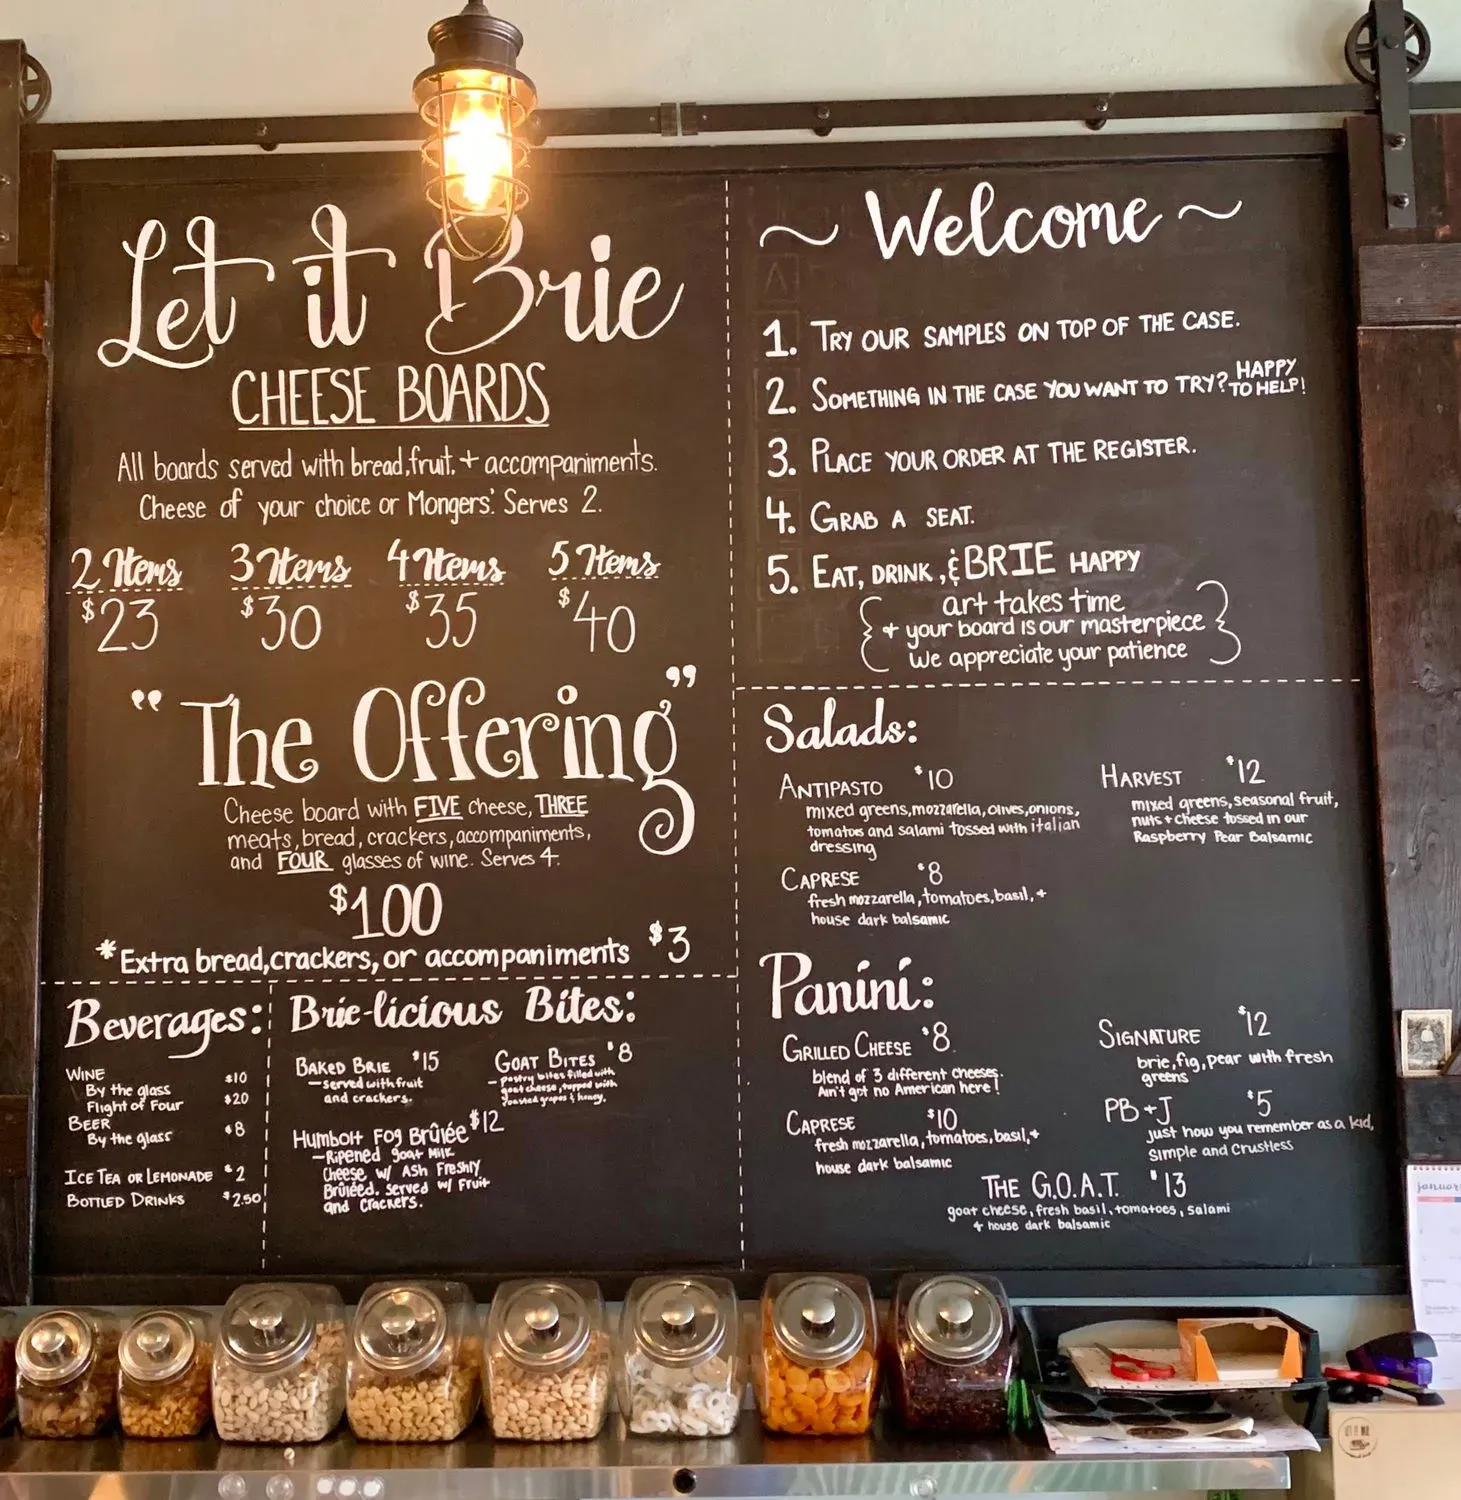 Let it Brie
CHEESE BOARDS
All boards served with bread, fruit, + accompaniments.
Cheese of your choice or Mongers'. Serves 2.
2 Items 3 Items 4 Items 5 Items
$23 $30 $35 $40
"The Offering"
Cheese board with FIVE cheese, THREE
meats, bread, crackers, accompaniments,
and FOUR glasses of wine. Serves 4.
$100
*Extra bread, crackers, or accompaniments $3
Beverages:
WINE
By the glass $10
Flight of Four $20
BEER
By the glass $8
ICE TEA OR LEMONADE $2
BOTTLED DRINKS $2.50
Brie-licious Bites:
BAKED BRIE $15
- served with fruit
and crackers.
GOAT BITES $8
- pastry bites filled with
goat cheese, topped with
roasted grapes & honey.
HUMBOLT FOG BRÛLÉE $12
- Ripened goat milk
Cheese w/ Ash Freshly
Brûléed. served w/ Fruit
and Crackers.
~ Welcome ~
1. TRY OUR SAMPLES ON TOP OF THE CASE.
2. SOMETHING IN THE CASE YOU WANT TO TRY? HAPPY
TO HELP!
3. PLACE YOUR ORDER AT THE REGISTER.
4. GRAB A SEAT.
5. EAT, DRINK, & BRIE HAPPY
{ art takes time
+ your board is our masterpiece
We appreciate your patience }
Salads:
ANTIPASTO $10
mixed greens, mozzarella, olives, onions,
tomatoes and salami tossed with italian
dressing
HARVEST $12
mixed greens, seasonal fruit,
nuts + cheese tossed in our
Raspberry Pear Balsamic
CAPRESE $8
fresh mozzarella, tomatoes, basil, +
house dark balsamic
Panini:
GRILLED CHEESE $8
blend of 3 different cheeses.
Ain't got no American here!
SIGNATURE $12
brie, fig, pear with fresh
greens
CAPRESE $10
fresh mozzarella, tomatoes, basil, +
house dark balsamic
PB + J $5
just how you remember as a kid,
simple and crustless
THE G.O.A.T. $13
goat cheese, fresh basil, tomatoes, salami
+ house dark balsamic
january
LET IT BRIE